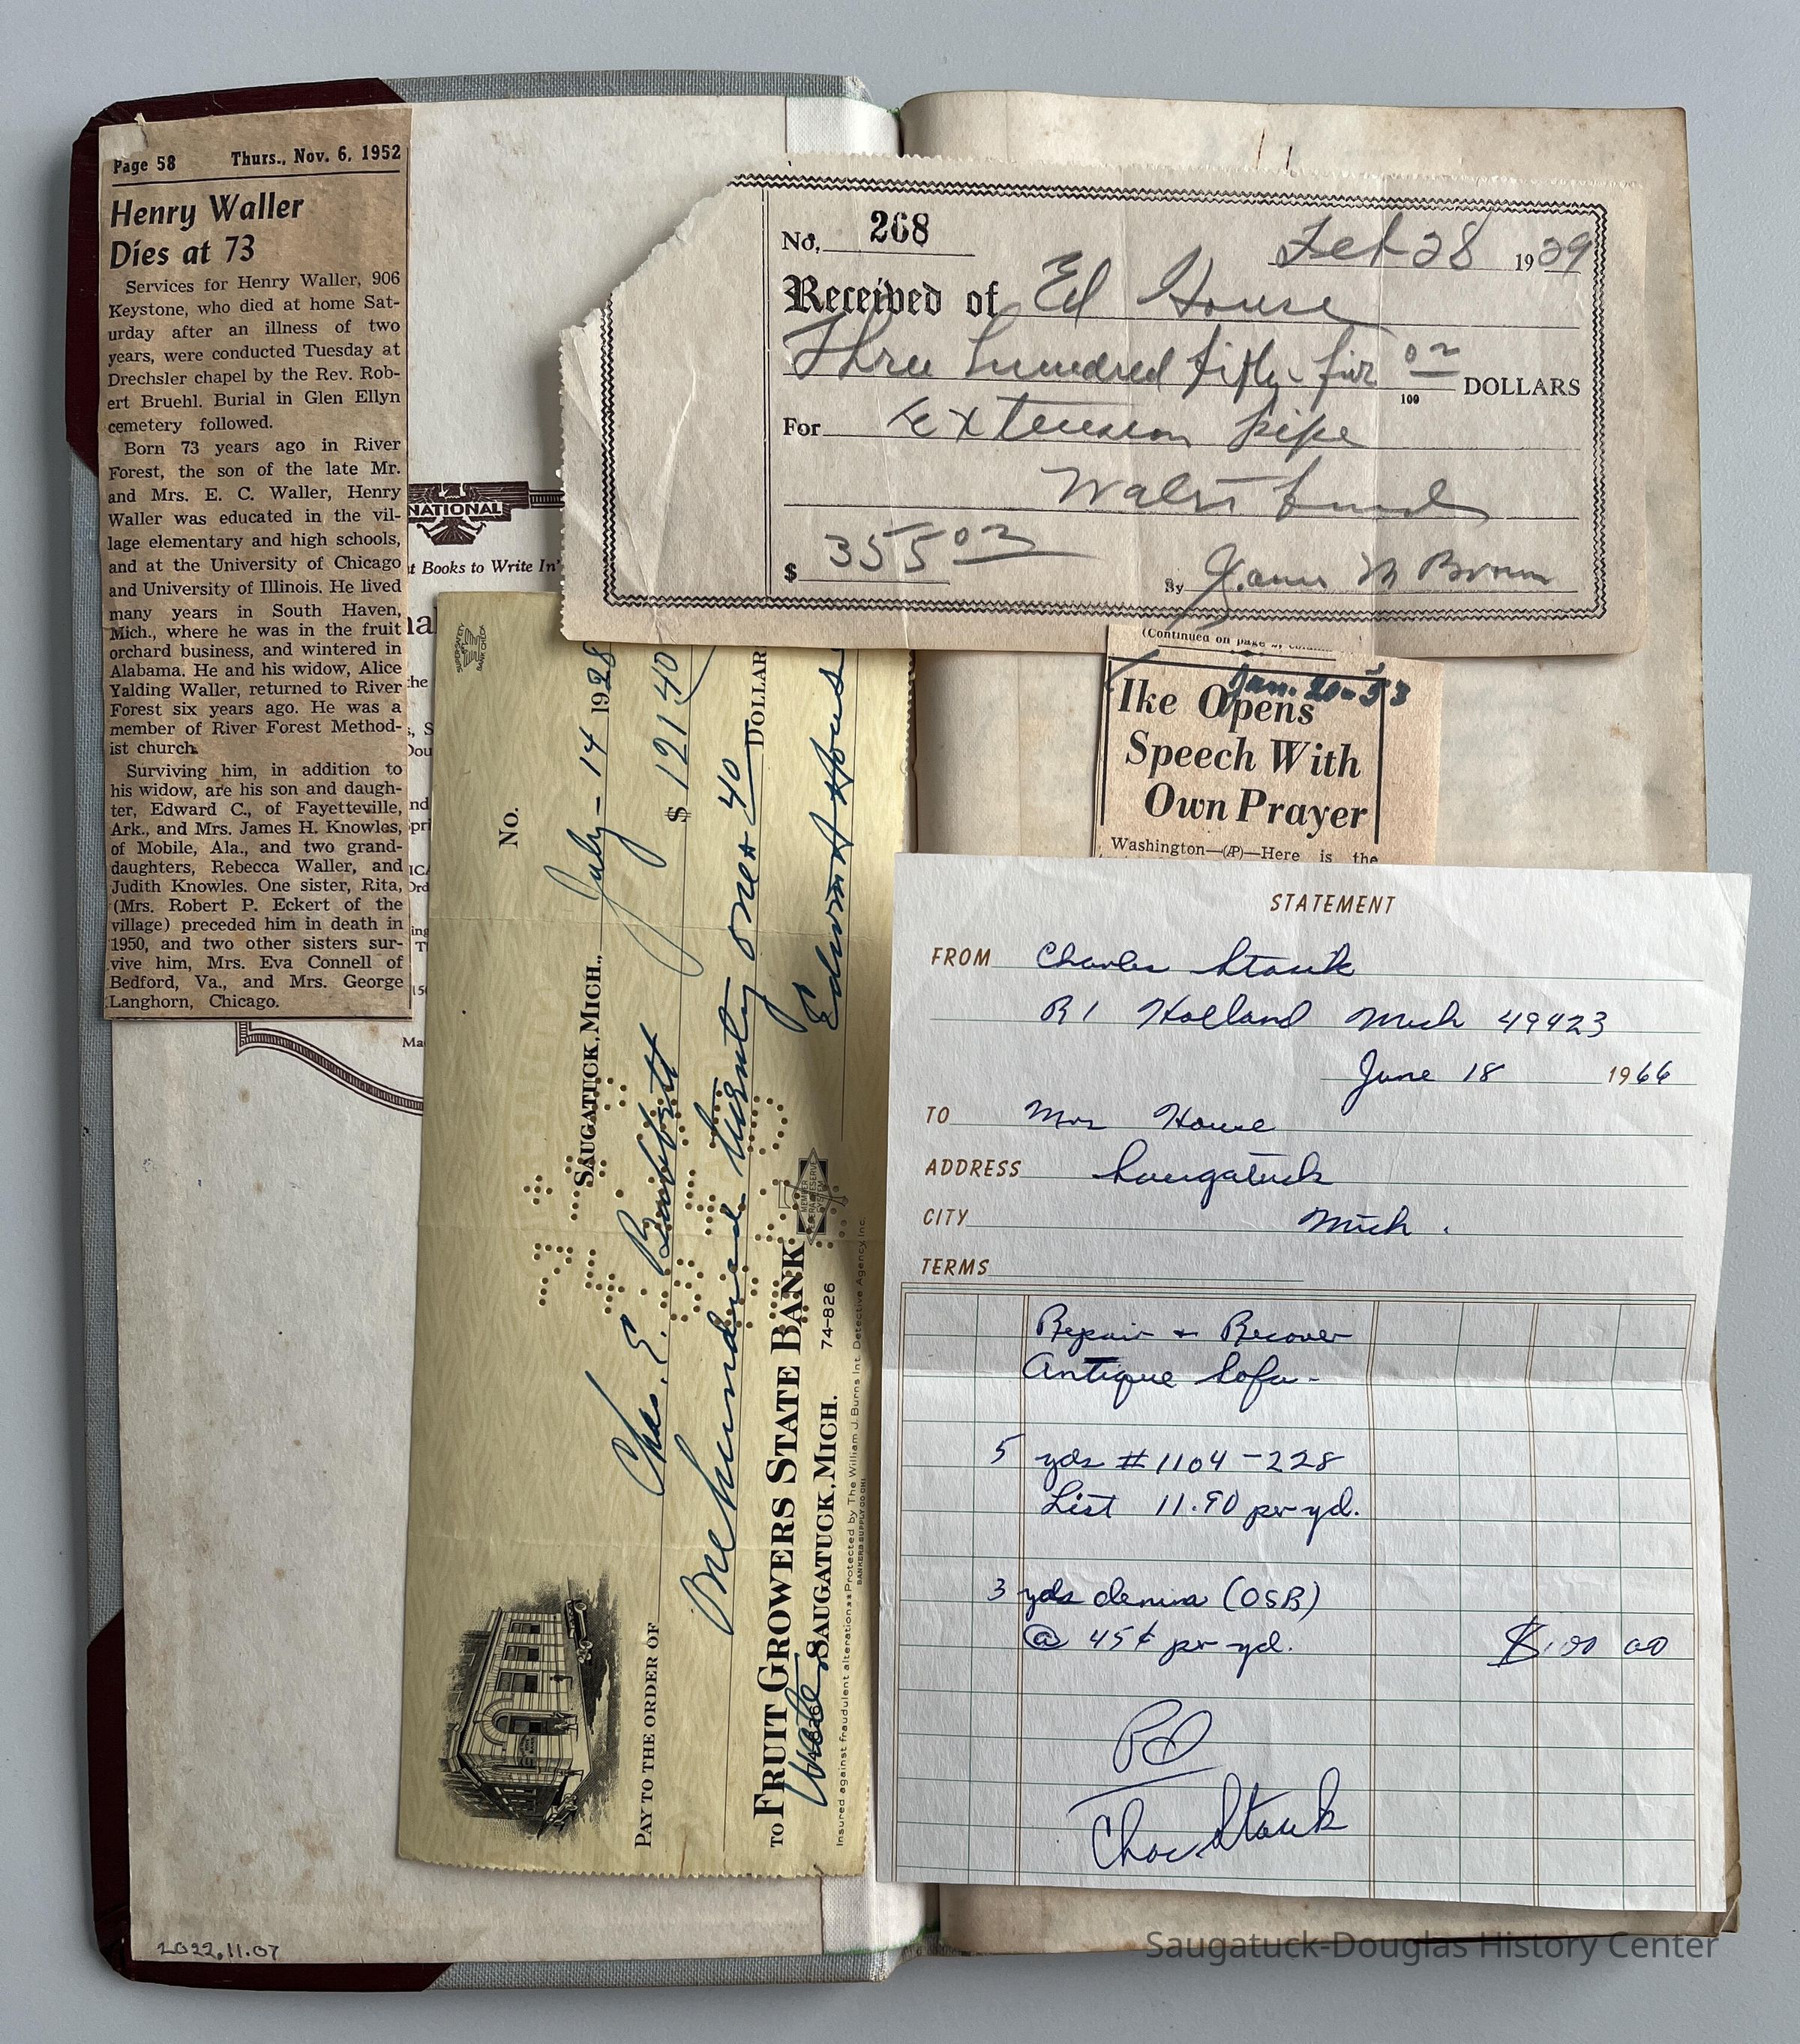 Page 58 Thurs., Nov. 6, 1952
Henry Waller
Dies at 73
Services for Henry Waller, 906
Keystone, who died at home Sat-
urday after an illness of two
years, were conducted Tuesday at
Drechsler chapel by the Rev. Rob-
ert Bruehl. Burial in Glen Ellyn
cemetery followed.
Born 73 years ago in River
Forest, the son of the late Mr.
and Mrs. E. C. Waller, Henry
Waller was educated in the vil-
lage elementary and high schools,
and at the University of Chicago
and University of Illinois. He lived
many years in South Haven,
Mich., where he was in the fruit
orchard business, and wintered in
Alabama. He and his widow, Alice
Yalding Waller, returned to River
Forest six years ago. He was a
member of River Forest Method-
ist church.
Surviving him, in addition to
his widow, are his son and daugh-
ter, Edward C., of Fayetteville,
Ark., and Mrs. James H. Knowles,
of Mobile, Ala., and two grand-
daughters, Rebecca Waller, and
Judith Knowles. One sister, Rita,
(Mrs. Robert P. Eckert of the
village) preceded him in death in
1950, and two other sisters sur-
vive him, Mrs. Eva Connell of
Bedford, Va., and Mrs. George
Langhorn, Chicago.
NATIONAL
Books to Write In"
No. 268 Feb 28 1929
Received of Ed House
Three hundred fifty-five 00/100 DOLLARS
For Extension pipe
Water fund
$ 355 00 By James M Brown
No.
SAUGATUCK, MICH., July-14 1928
PAY TO THE ORDER OF Chas. E. $ 121 40
One hundred twenty one & 40 DOLLAR
TO FRUIT GROWERS STATE BANK
Edwin A House
SAUGATUCK, MICH. 74-826
Water
MEMBER FEDERAL RESERVE SYSTEM
Insured against fraudulent alterations Protected by The William J. Burns Int. Detective Agency Inc.
BANKERS SUPPLY CO CHI
SUPER-SAFETY BANK CHECK
(Continued on page
Jan. 20-53
Ike Opens
Speech With
Own Prayer
Washington—(AP)—Here is the
STATEMENT
FROM Charles
R 1 Holland Mich 49423
June 18 1966
TO Mrs House
ADDRESS Saugatuck
CITY Mich.
TERMS
Repair & Recover
Antique Sofa-
5 yds #1104-228
List 11.90 per yd.
3 yds denim (OSB)
@ 45¢ per yd. $100 00
Pd
Chas
2022.11.07
Saugatuck-Douglas History Center